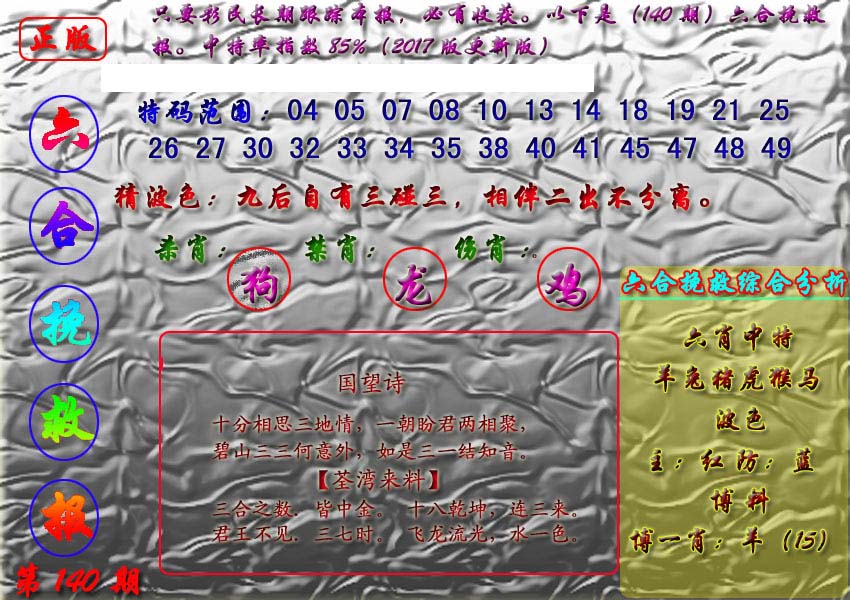 正版
只要彩民长期跟踪本报，必有收获。以下是（140期）六合挽救
报。中特率指数85%（2017版更新版）
特码范围：04 05 07 08 10 13 14 18 19 21 25
26 27 30 32 33 34 35 38 40 41 45 47 48 49
猜波色：九后自有三碰三，相伴二出不分离。
杀肖：狗 禁肖：龙 伤肖：。鸡
六
合
挽
救
报
第140期
国望诗
十分相思三地情，一朝盼君两相聚，
碧山三三何意外，如是三一结知音。
【荃湾来料】
三合之数．皆中金。 十八乾坤，连三来。
君王不见．三七时。 飞龙流光，水一色。
六合挽救综合分析
六肖中特
羊兔猪虎猴马
波色
主：红防：蓝
博料
博一肖：羊（15）